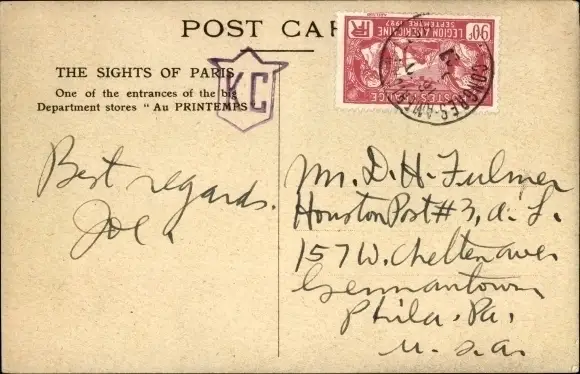 POST CAR
THE SIGHTS OF PARIS
One of the entrances of the big
Department stores "Au PRINTEMPS"
KC
90c
LEGION AMERICAINE
SEPTEMBRE 1927
RF
POSTES
CONGRES
Best regards.
Joe.
Mr. D. H. Fulmer
Houston Post #3, A. L.
157 W. Chelten aven
Germantown
Phila. Pa.
U.S.A.